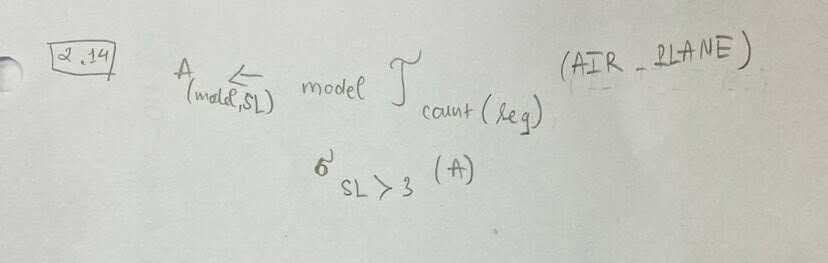 2.14
A (model, SL) ← model ℱ count(reg) (AIR_PLANE)
σ SL > 3 (A)